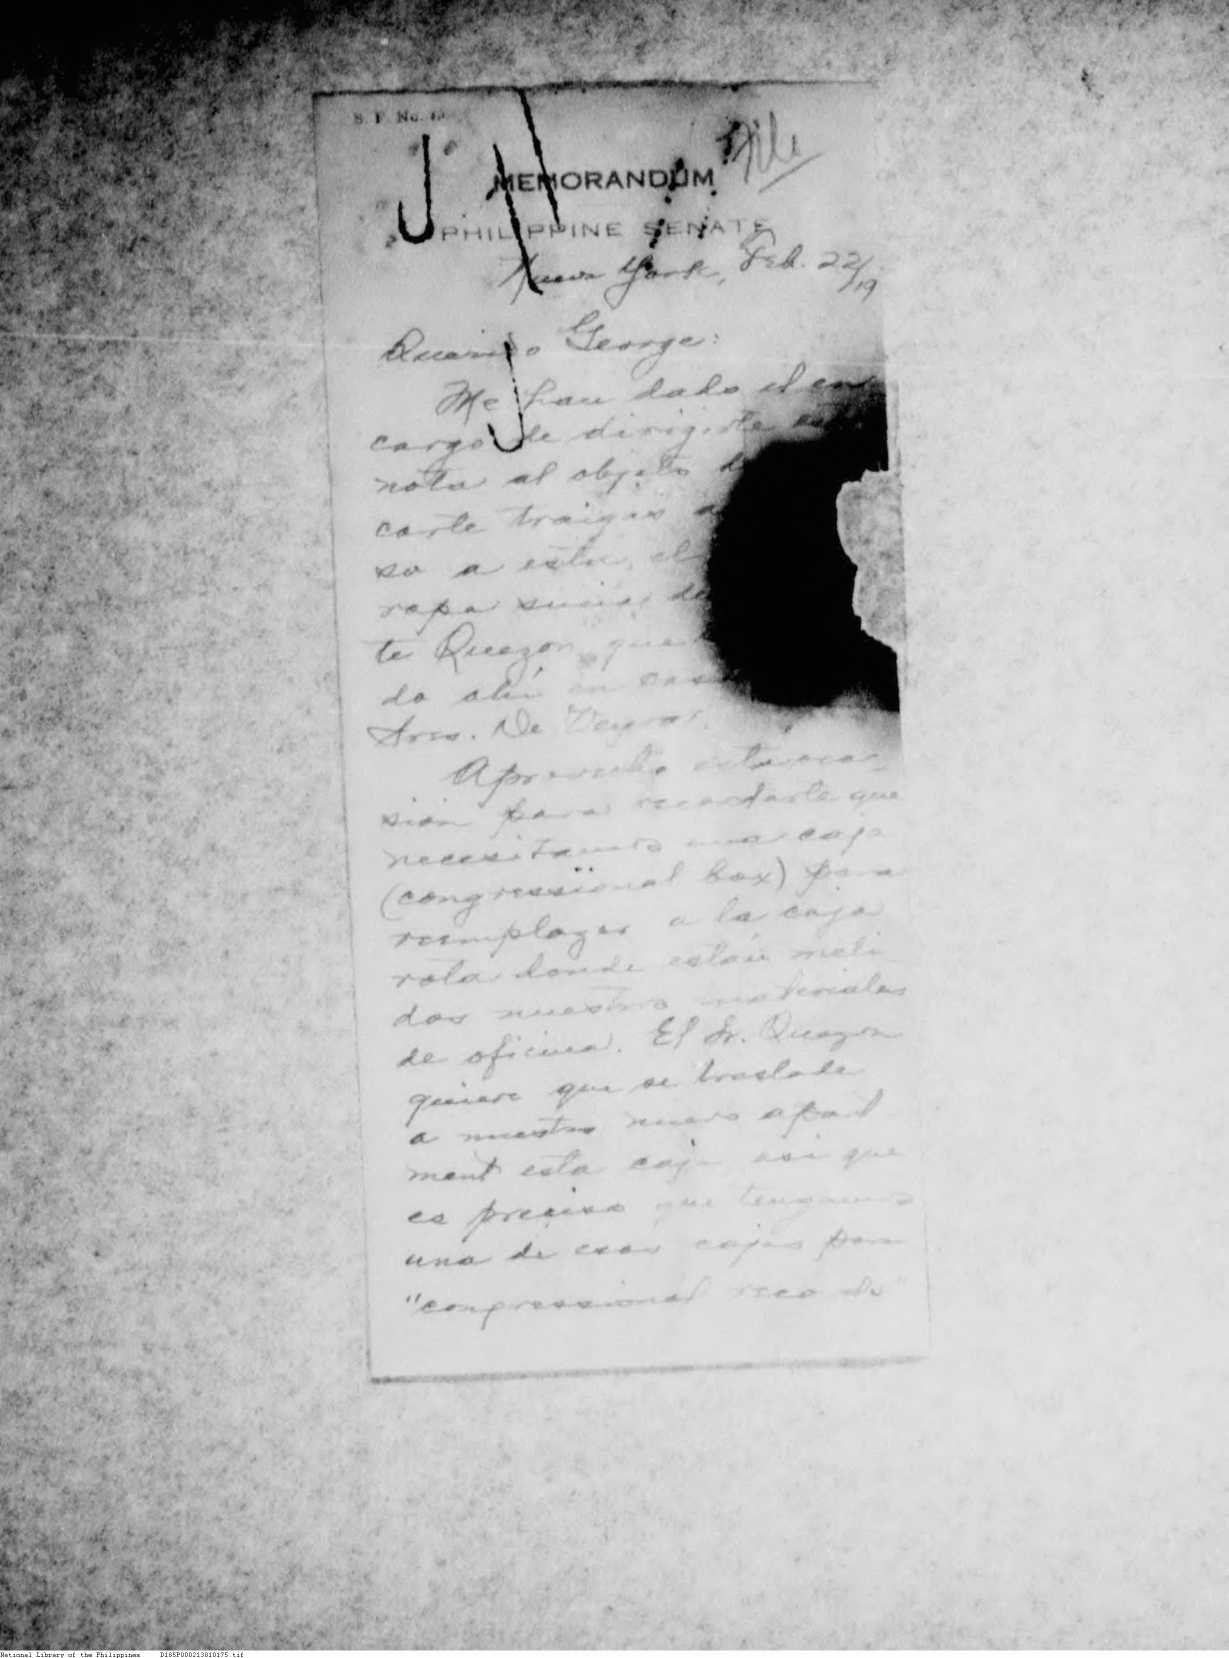 S. F. No.
File
MEMORANDUM
PHILIPPINE SENATE
New York, Feb. 22/19
Querido George:
Me han dado el en
cargo de dirigirte
nota al objeto
carte traigas
so a esta, el
ropa sucia de
te Quezon que
do ahí en casa
Sres. De Veyra.
Aprovecho esta oca-
sion para recordarte que
necesitamos una caja
(congressional box) para
reemplazar a la caja
rota donde están meti-
dos nuestros materiales
de oficina. El Sr. Quezon
quiere que se traslade
a nuestro nuevo apart
ment esta caja asi que
es preciso que tengamos
una de esas cajas para
"congressional records"
National Library of the Philippines D185P000213810175.tif